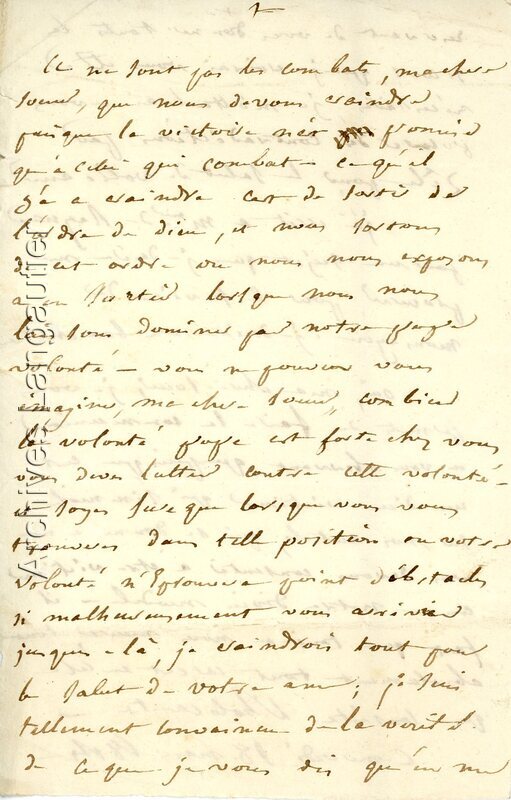 +
Ce ne sont pas les combats, ma chere
soeur, que nous devons craindre
puisque la victoire n'est promise
qu'à celui qui combat ce qu'il
y a a craindre c'est de sortir de
l'ordre de dieu, et nous sortons
de cet ordre ou nous nous exposons
a en sortir lorsque nous nous
laissons dominer par notre propre
volonté – vous ne pouvez vous
imaginer, ma chere soeur, combien
la volonté propre est forte chez vous
vous devez lutter contre cette volonté –
et soyez sure que lorsque vous vous
trouverez dans telle position ou votre
volonté n'éprouvera point d'obstacles
si malheureusement vous arriviez
jusques-là, je craindrois tout pour
le salut de votre ame; je suis
tellement convaincu de la verité
de ce que je vous dis qu'en me
Archives Langautier